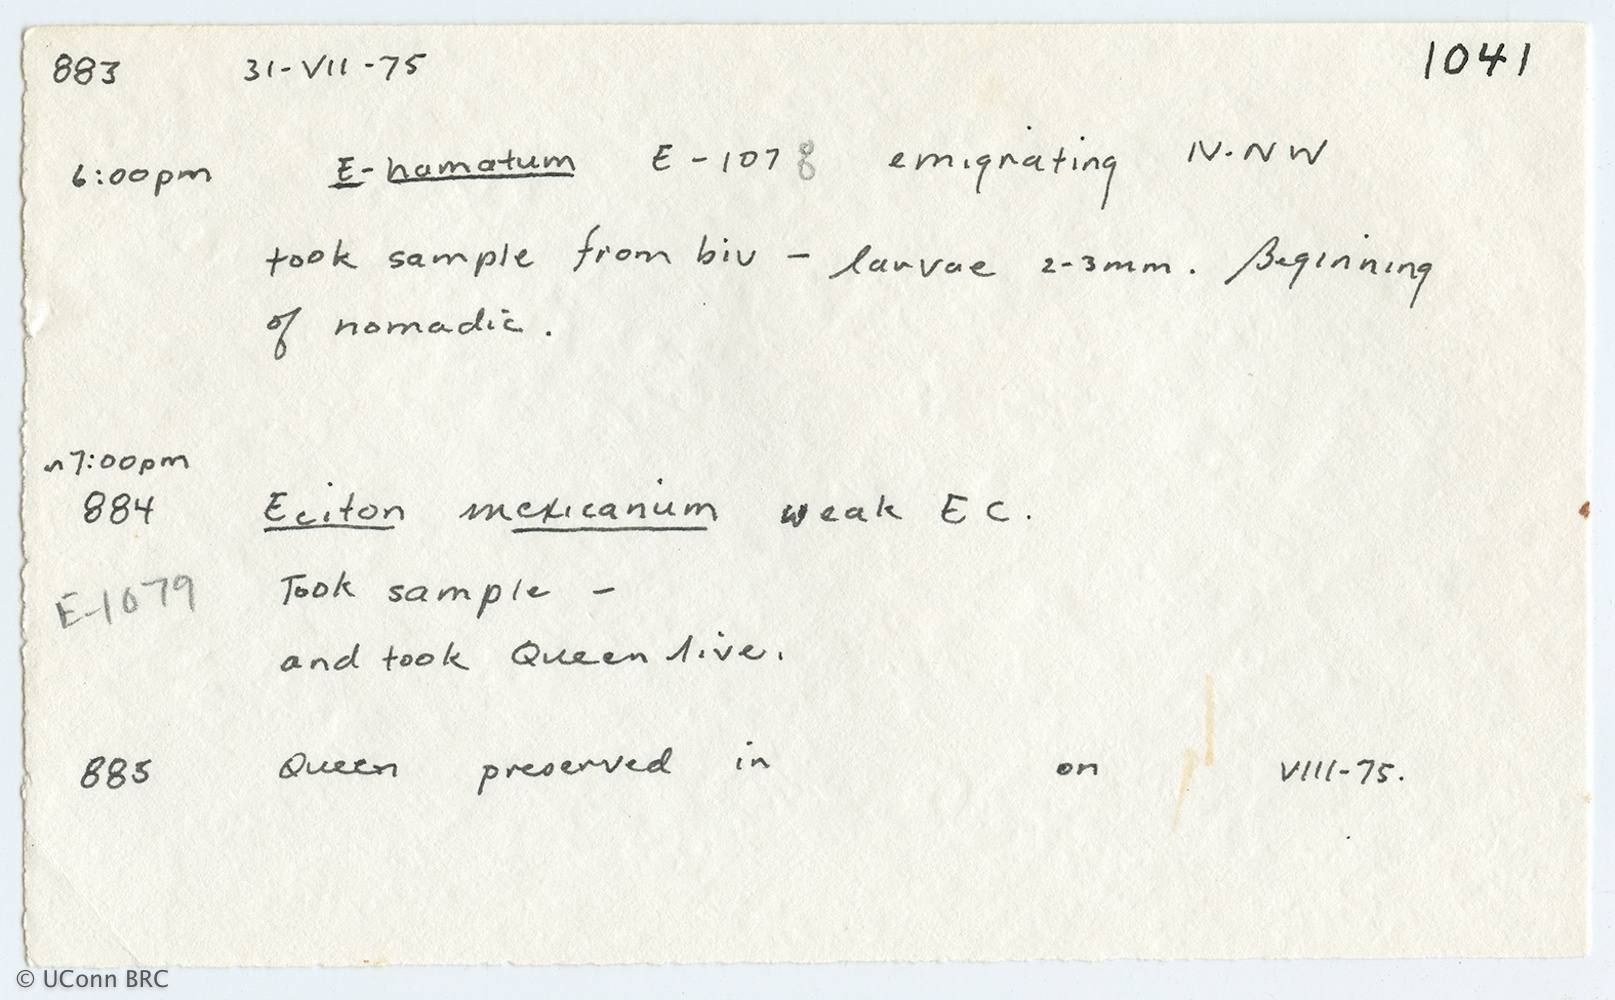 883 31-VII-75 1041
6:00pm E-hamatum E-1078 emigrating N-NW
took sample from biv - larvae 2-3mm. Beginning
of nomadic.
~7:00pm
884 Eciton mexicanium weak EC.
E-1079 Took sample -
and took Queen live.
885 Queen preserved in on VIII-75.
© UConn BRC